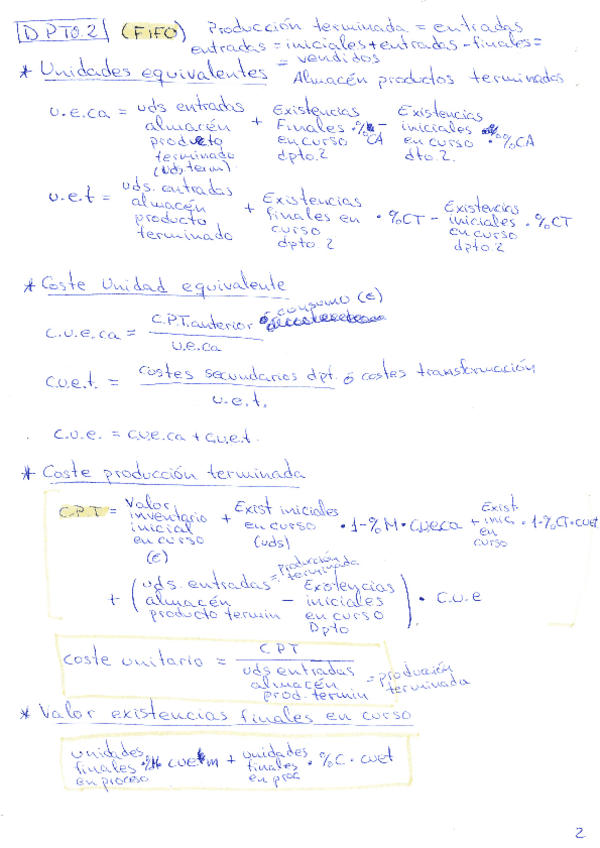 DPTO.2 (FIFO) Producción terminada = entradas
entradas = iniciales + entradas - finales =
= vendidos
* Unidades equivalentes Almacén productos terminados
u.e.ca = uds entradas + Existencias - Existencias
almacén Finales · % CA iniciales · % CA
producto en curso en curso
terminado dpto.2 dto.2.
(uds term)
u.e.t = uds. entradas + Existencias · %CT - Existencias · %CT
almacén finales en iniciales
producto curso en curso
terminado dpto 2 dpto.2
* Coste Unidad equivalente
c.u.e.ca = C.P.T. anterior ó consumo (€)
u.e.ca
c.u.e.t. = costes secundarios dpt. ó costes transformación
u.e.t.
c.u.e. = c.u.e.ca + c.u.e.t.
* Coste producción terminada
C.P.T = Valor + Exist iniciales · 1-%M · cueca + Exist. · 1-%CT · cuet
inventario en curso inic.
inicial (uds) en
en curso curso
(€)
= producción terminada
+ ( uds. entradas - Existencias ) · c.u.e
almacén iniciales
producto termin en curso
Dpto
coste unitario = CPT
uds entradas = producción
almacén terminada
prod. termin
* Valor existencias finales en curso
unidades + unidades · %C · cuet
finales finales
en proceso en proc
2